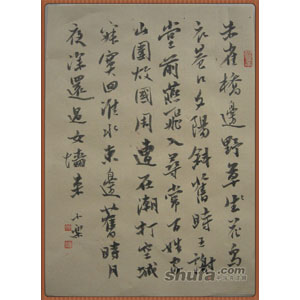 朱雀橋邊野草生花烏
衣巷口夕陽斜舊時王謝
堂前燕飛入尋常百姓家
山圍故國周遭在潮打空城
寂寞回淮水東邊舊時月
夜深還過女墻來
shufa.com